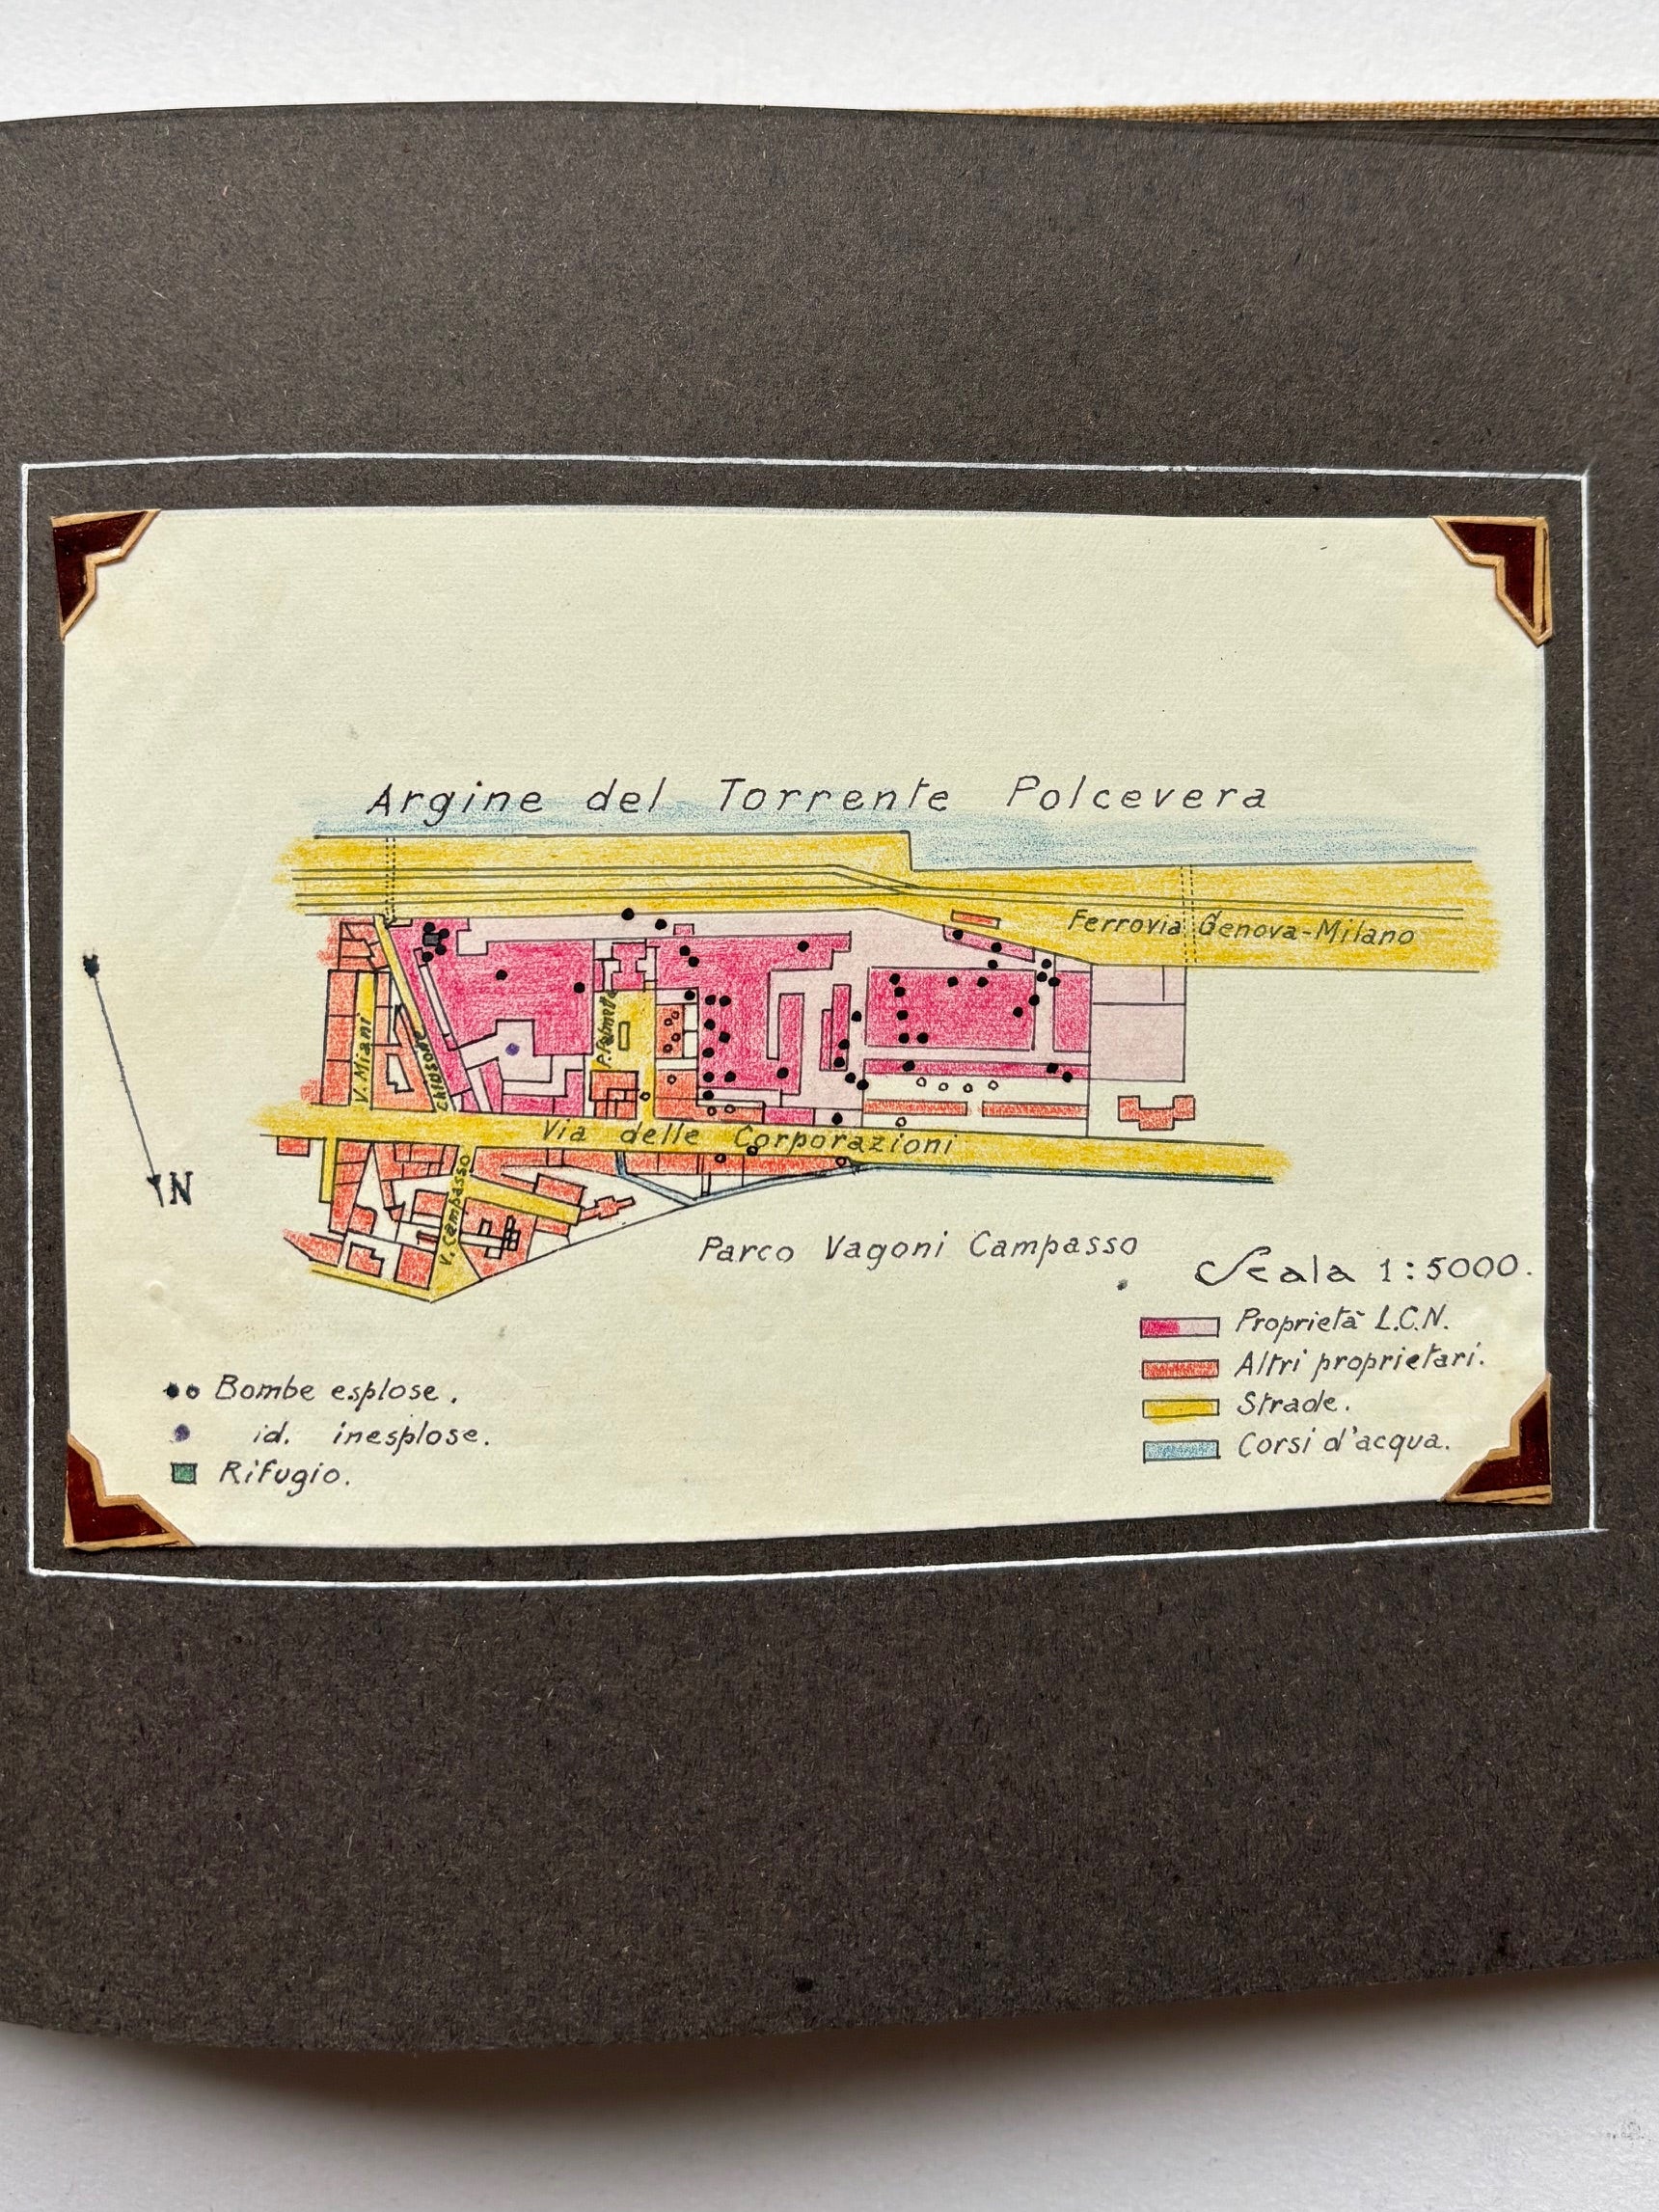 Argine del Torrente Polcevera
Ferrovia Genova-Milano
V. Miani
Chiusone
Via delle Corporazioni
V. Campasso
N
Parco Vagoni Campasso
Scala 1:5000.
Proprietà L.C.N.
Altri proprietari.
Strade.
Corsi d'acqua.
Bombe esplose.
id. inesplose.
Rifugio.